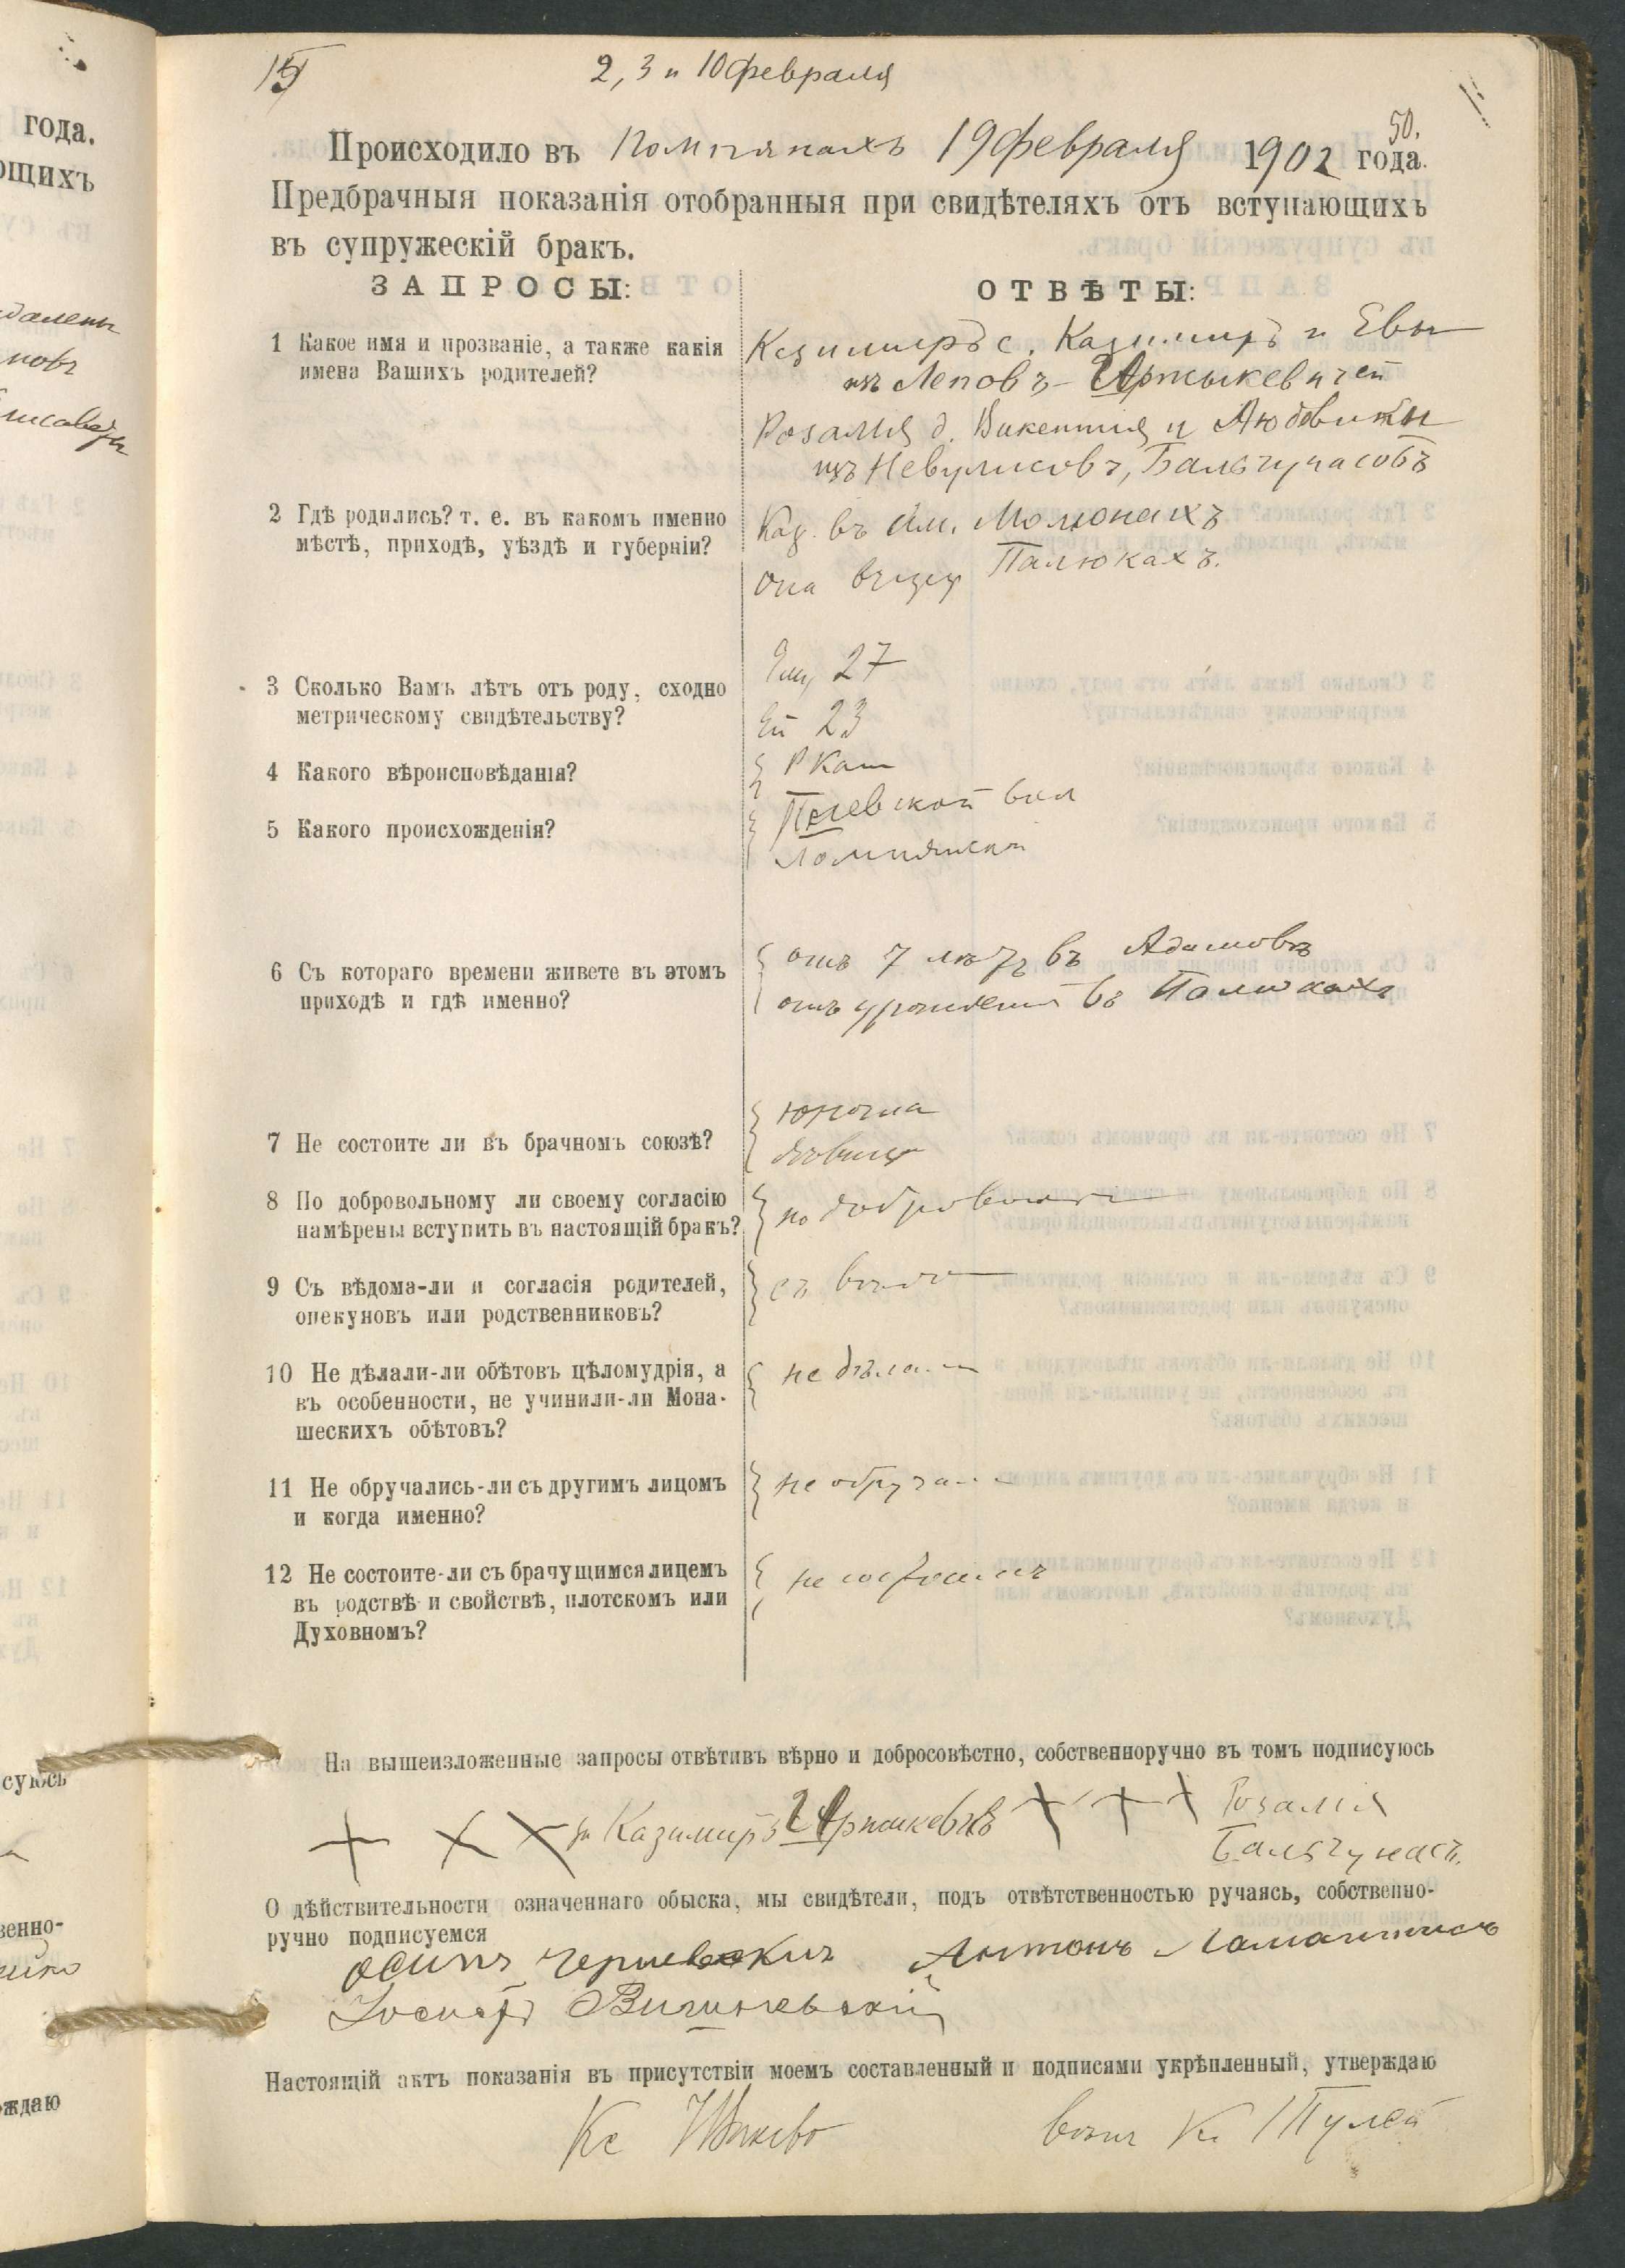 15
2, 3 и 10 февраля
50.
Происходило въ Помпянахъ 19 февраля 1902 года.
Предбрачныя показанія отобранныя при свидѣтеляхъ отъ вступающихъ
въ супружескій бракъ.
ЗАПРОСЫ:
ОТВѢТЫ:
1 Какое имя и прозваніе, а также какія
имена Вашихъ родителей?
Казимиръ с. Казимира и Евы
изъ Леповъ
Розалія д. Викентія и Людвики
изъ Невулисовъ, Бальчунасовъ
2 Гдѣ родились? т. е. въ какомъ именно
мѣстѣ, приходѣ, уѣздѣ и губерніи?
Каз. въ им. Молюнахъ
она въ Палюкахъ.
3 Сколько Вамъ лѣтъ отъ роду, сходно
метрическому свидѣтельству?
Ему 27
Ей 23
4 Какого вѣроисповѣданія?
Р Кат
5 Какого происхожденія?
вол
6 Съ котораго времени живете въ этомъ
приходѣ и гдѣ именно?
отъ 7 лѣтъ въ Адамовѣ
отъ урожденія въ Палюкахъ
7 Не состоите ли въ брачномъ союзѣ?
юноша
дѣвица
8 По добровольному ли своему согласію
намѣрены вступить въ настоящій бракъ?
по доброволь
9 Съ вѣдома-ли и согласія родителей,
опекуновъ или родственниковъ?
съ вѣдо
10 Не дѣлали-ли обѣтовъ цѣломудрія, а
въ особенности, не учинили-ли Мона-
шескихъ обѣтовъ?
не дѣлали
11 Не обручались-ли съ другимъ лицомъ
и когда именно?
не обруча
12 Не состоите-ли съ брачущимся лицемъ
въ родствѣ и свойствѣ, плотскомъ или
Духовномъ?
не состоимъ
На вышеизложенные запросы отвѣтивъ вѣрно и добросовѣстно, собственноручно въ томъ подписуюсь
+ × × Казимиръ × + × Розалія
Бальчунасъ.
О дѣйствительности означеннаго обыска, мы свидѣтели, подъ отвѣтственностью ручаясь, собственно-
ручно подписуемся
Осипъ Антонъ
Іосифъ Вишневскій
Настоящій актъ показанія въ присутствіи моемъ составленный и подписями укрѣпленный, утверждаю
Кс